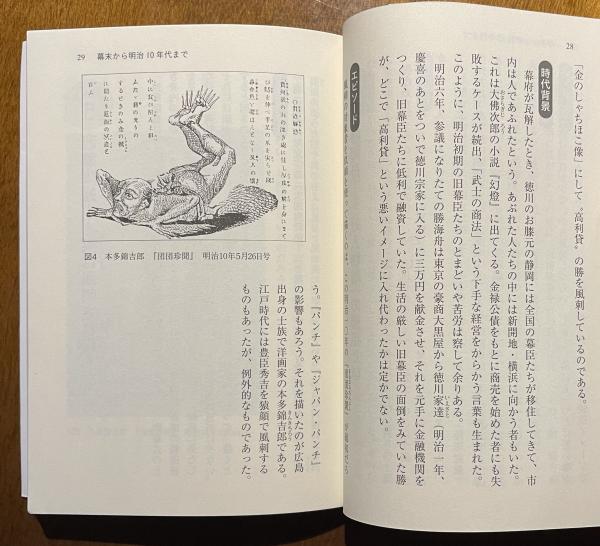 28
「金のしゃちほこ像」にして〝高利貸〟の勝を風刺しているのである。
時代背景
幕府が瓦解したとき、徳川のお膝元の静岡には全国の幕臣たちが移住してきて、市
内は人であふれたという。あぶれた人たちの中には新開地・横浜に向かう者もいた。
これは大佛次郎の小説『幻燈』に出てくる。金禄公債をもとに商売を始めた者にも失
敗するケースが続出、「武士の商法」という下手な経営をからかう言葉も生まれた。
このように、明治初期の旧幕臣たちのとまどいや苦労は察して余りある。
明治六年、参議になりたての勝海舟は東京の豪商大黒屋から徳川家達（明治一年、
慶喜のあとをついで徳川宗家に入る）に三万円を献金させ、それを元手に金融機関を
つくり、旧幕臣たちに低利で融資していた。生活の厳しい旧幕臣の面倒をみていた勝
が、どこで「高利貸」という悪いイメージに入れ代わったかは定かでない。
エピソード
29 幕末から明治10年代まで
図4 本多錦吉郎 『団団珍聞』 明治10年5月26日号
う。『パンチ』や『ジャパン・パンチ』
の影響もあろう。それを描いたのが広島
出身の士族で洋画家の本多錦吉郎である。
江戸時代には豊臣秀吉を猿顔で風刺する
ものもあったが、例外的なものであった。